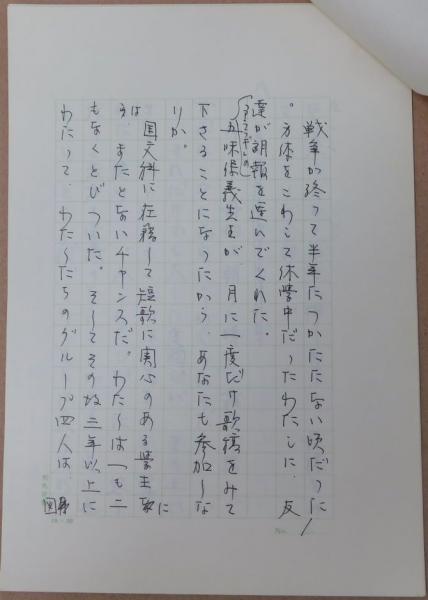 戦争が終って半年たつかたたない頃だった
。方体をこわして休学中だったわたしに、友
達が朗報を運んでくれた。
五味保義先生が、月に一度だけ歌稿をみて
下さることになったから、あなたも参加しな
いか。
国文科に在籍して短歌に関心のある学生に
は、またとないチャンスだ。わたしは一も二
もなくとびついた。そしてその後三年以上に
わたって、わたしたちのグループ四人は、
No.